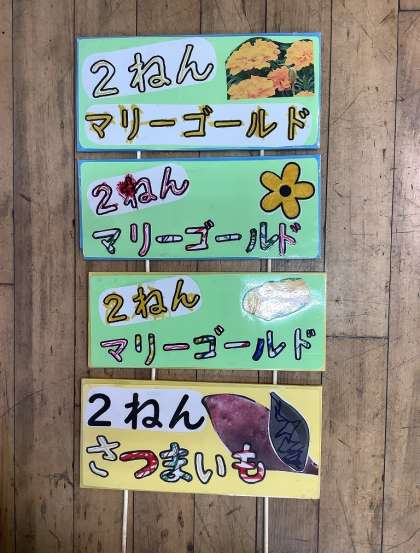 2ねん
マリーゴールド
2ねん
マリーゴールド
2ねん
マリーゴールド
2ねん
さつまいも